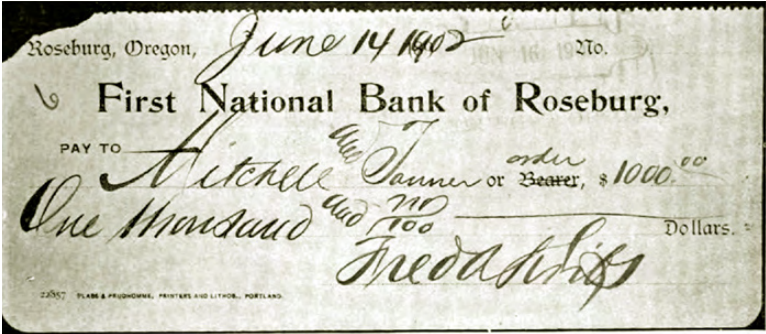 Roseburg, Oregon, June 14 1902 No.
First National Bank of Roseburg,
PAY TO Mitchell and Tanner or Bearer, order $ 1000.00
One thousand and no/100 Dollars.
Fred A
22857 GLASS & PRUDHOMME, PRINTERS AND LITHOS., PORTLAND.